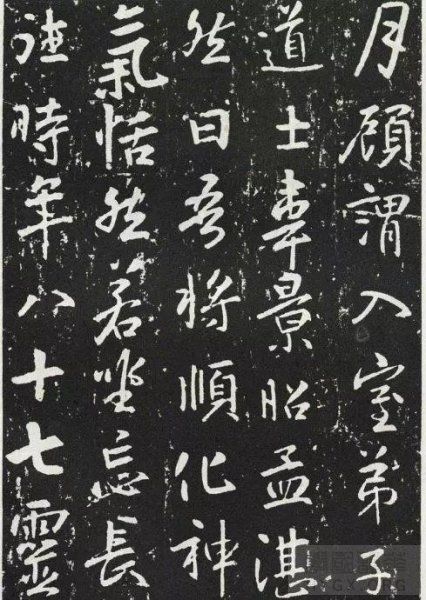 月顧謂入室弟子
道士韋景昭孟湛
然曰吾將順化神
氣恬然若坐忘長
往時年八十七靈